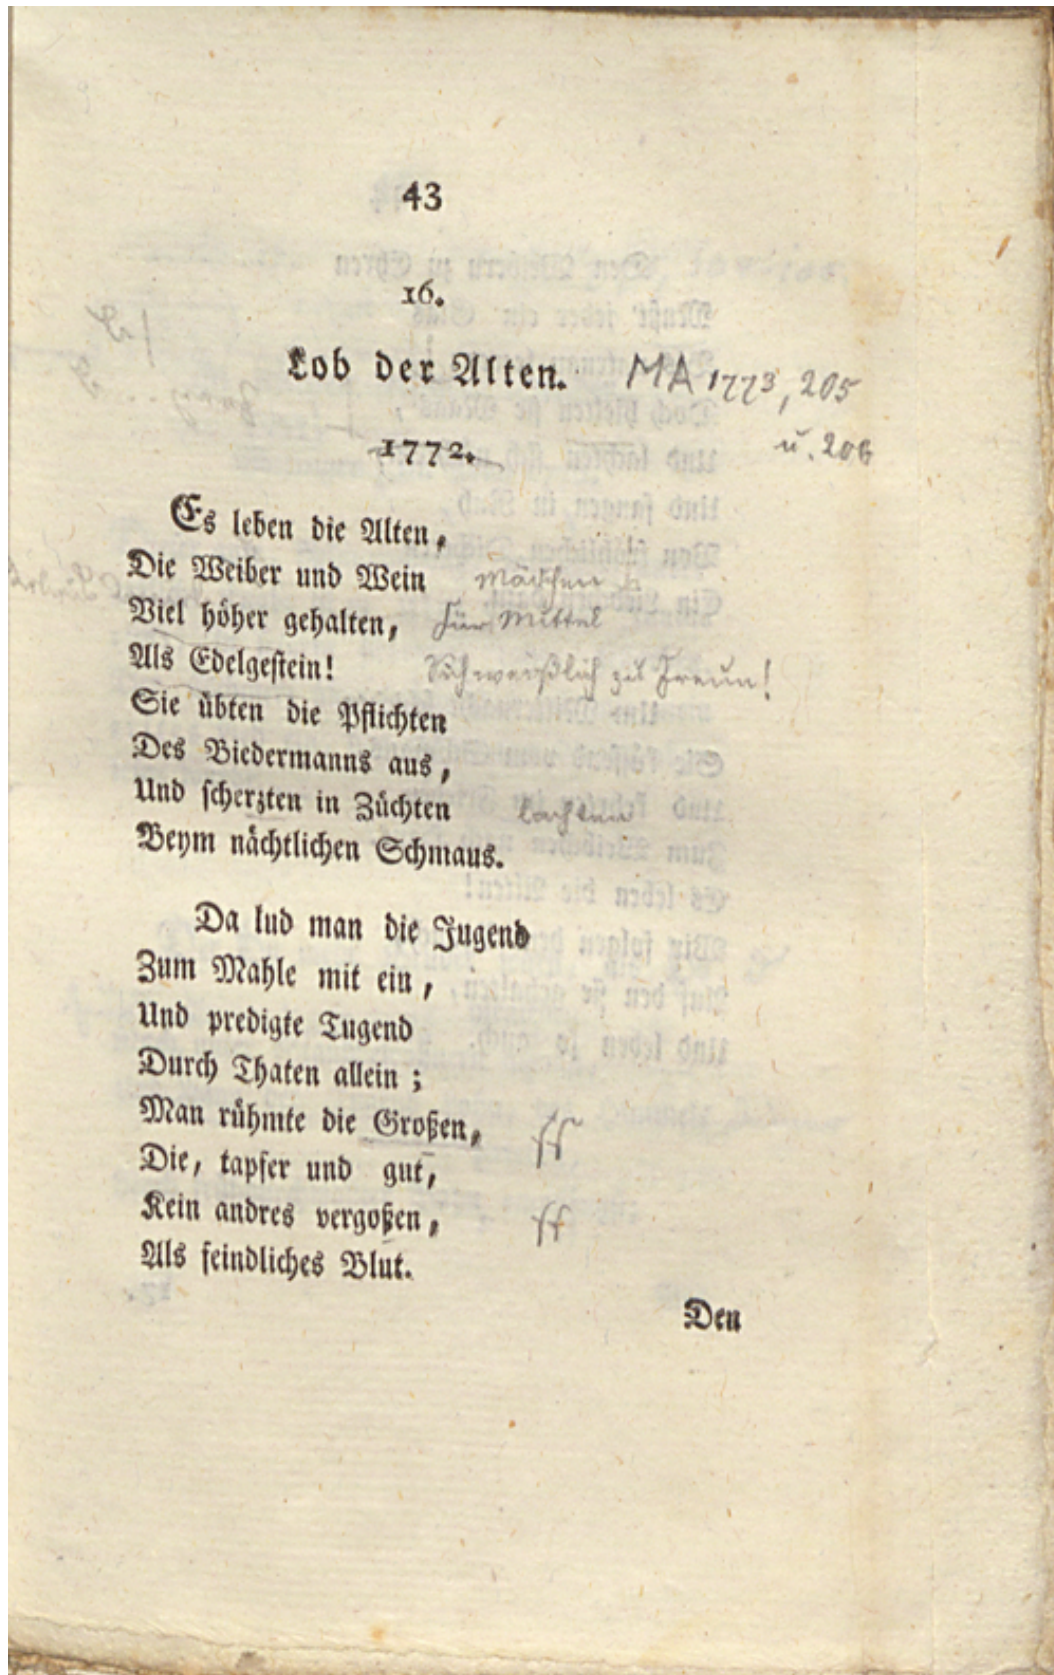 43
16.
Lob der Alten. MA 1773, 205
1772. u. 206
Es leben die Alten,
Die Weiber und Wein Mädchen
Viel höher gehalten, für Mittel
Als Edelgestein! zu freun!
Sie übten die Pflichten
Des Biedermanns aus,
Und scherzten in Züchten lachten
Beym nächtlichen Schmaus.
Da lud man die Jugend
Zum Mahle mit ein,
Und predigte Tugend
Durch Thaten allein;
Man rühmte die Großen, ss
Die, tapfer und gut,
Kein andres vergoßen, ss
Als feindliches Blut.
Den